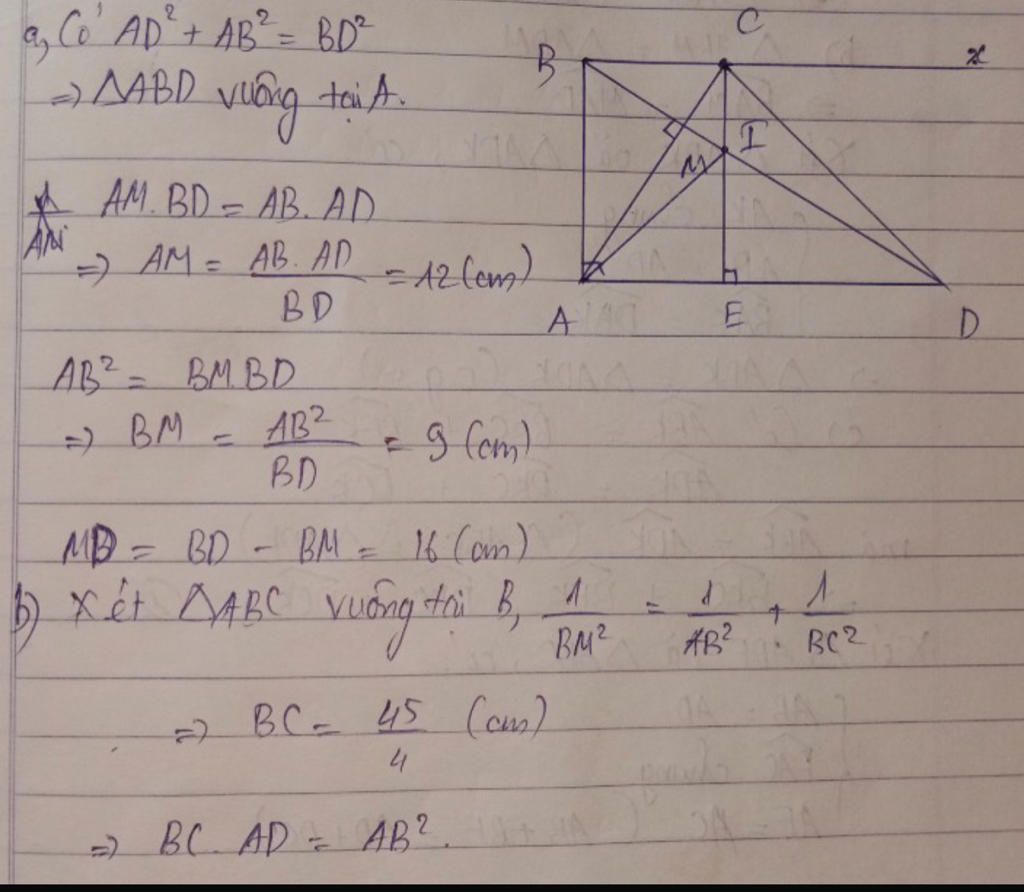 a, Có AD² + AB² = BD²
⇒ △ABD vuông tại A.
AM.BD = AB.AD
⇒ AM = AB.AD / BD = 12 (cm)
AB² = BM.BD
⇒ BM = AB² / BD = 9 (cm)
MD = BD - BM = 16 (cm)
b) Xét △ABC vuông tại B, 1/BM² = 1/AB² + 1/BC²
⇒ BC = 45/4 (cm)
⇒ BC.AD = AB².
B C x
I
M
A E D